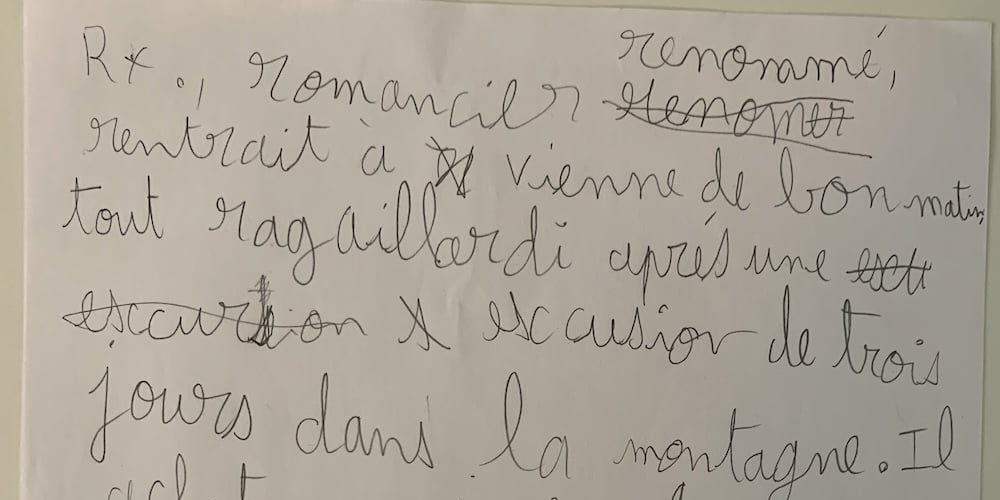 Rx., romancier renommé,
rentrait à Vienne de bon matin,
tout ragaillardi aprés une
escausion de trois
jours dans la montagne. Il